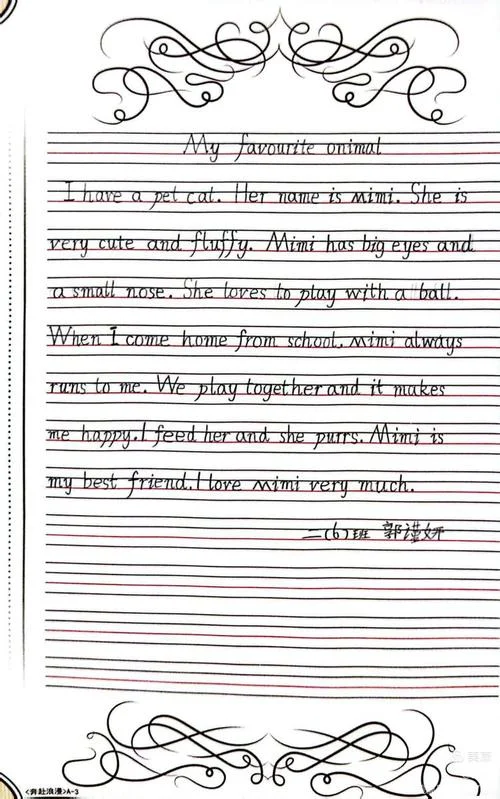 My favourite onimal
I have a pet cat. Her name is mimi. She is
very cute and fluffy. Mimi has big eyes and
a small nose. She loves to play with a ball.
When I come home from school, mimi always
runs to me. We play together and it makes
me happy. I feed her and she purrs. Mimi is
my best friend. I love mimi very much.
二(6)班 郭谨妍
<奔赴浪漫>A-3